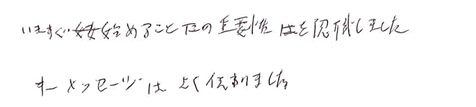 いますぐ始めることの重要性はを認識しました
キーメッセージはよく伝わりました